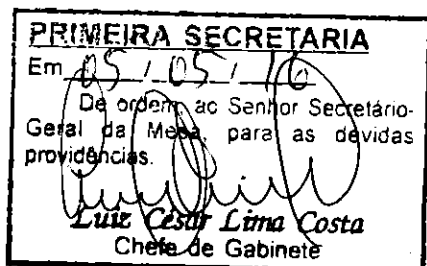 PRIMEIRA SECRETARIA
Em 05 / 05 / 16
De ordem, ao Senhor Secretário-
Geral da Mesa, para as devidas
providências.
Luiz César Lima Costa
Chefe de Gabinete